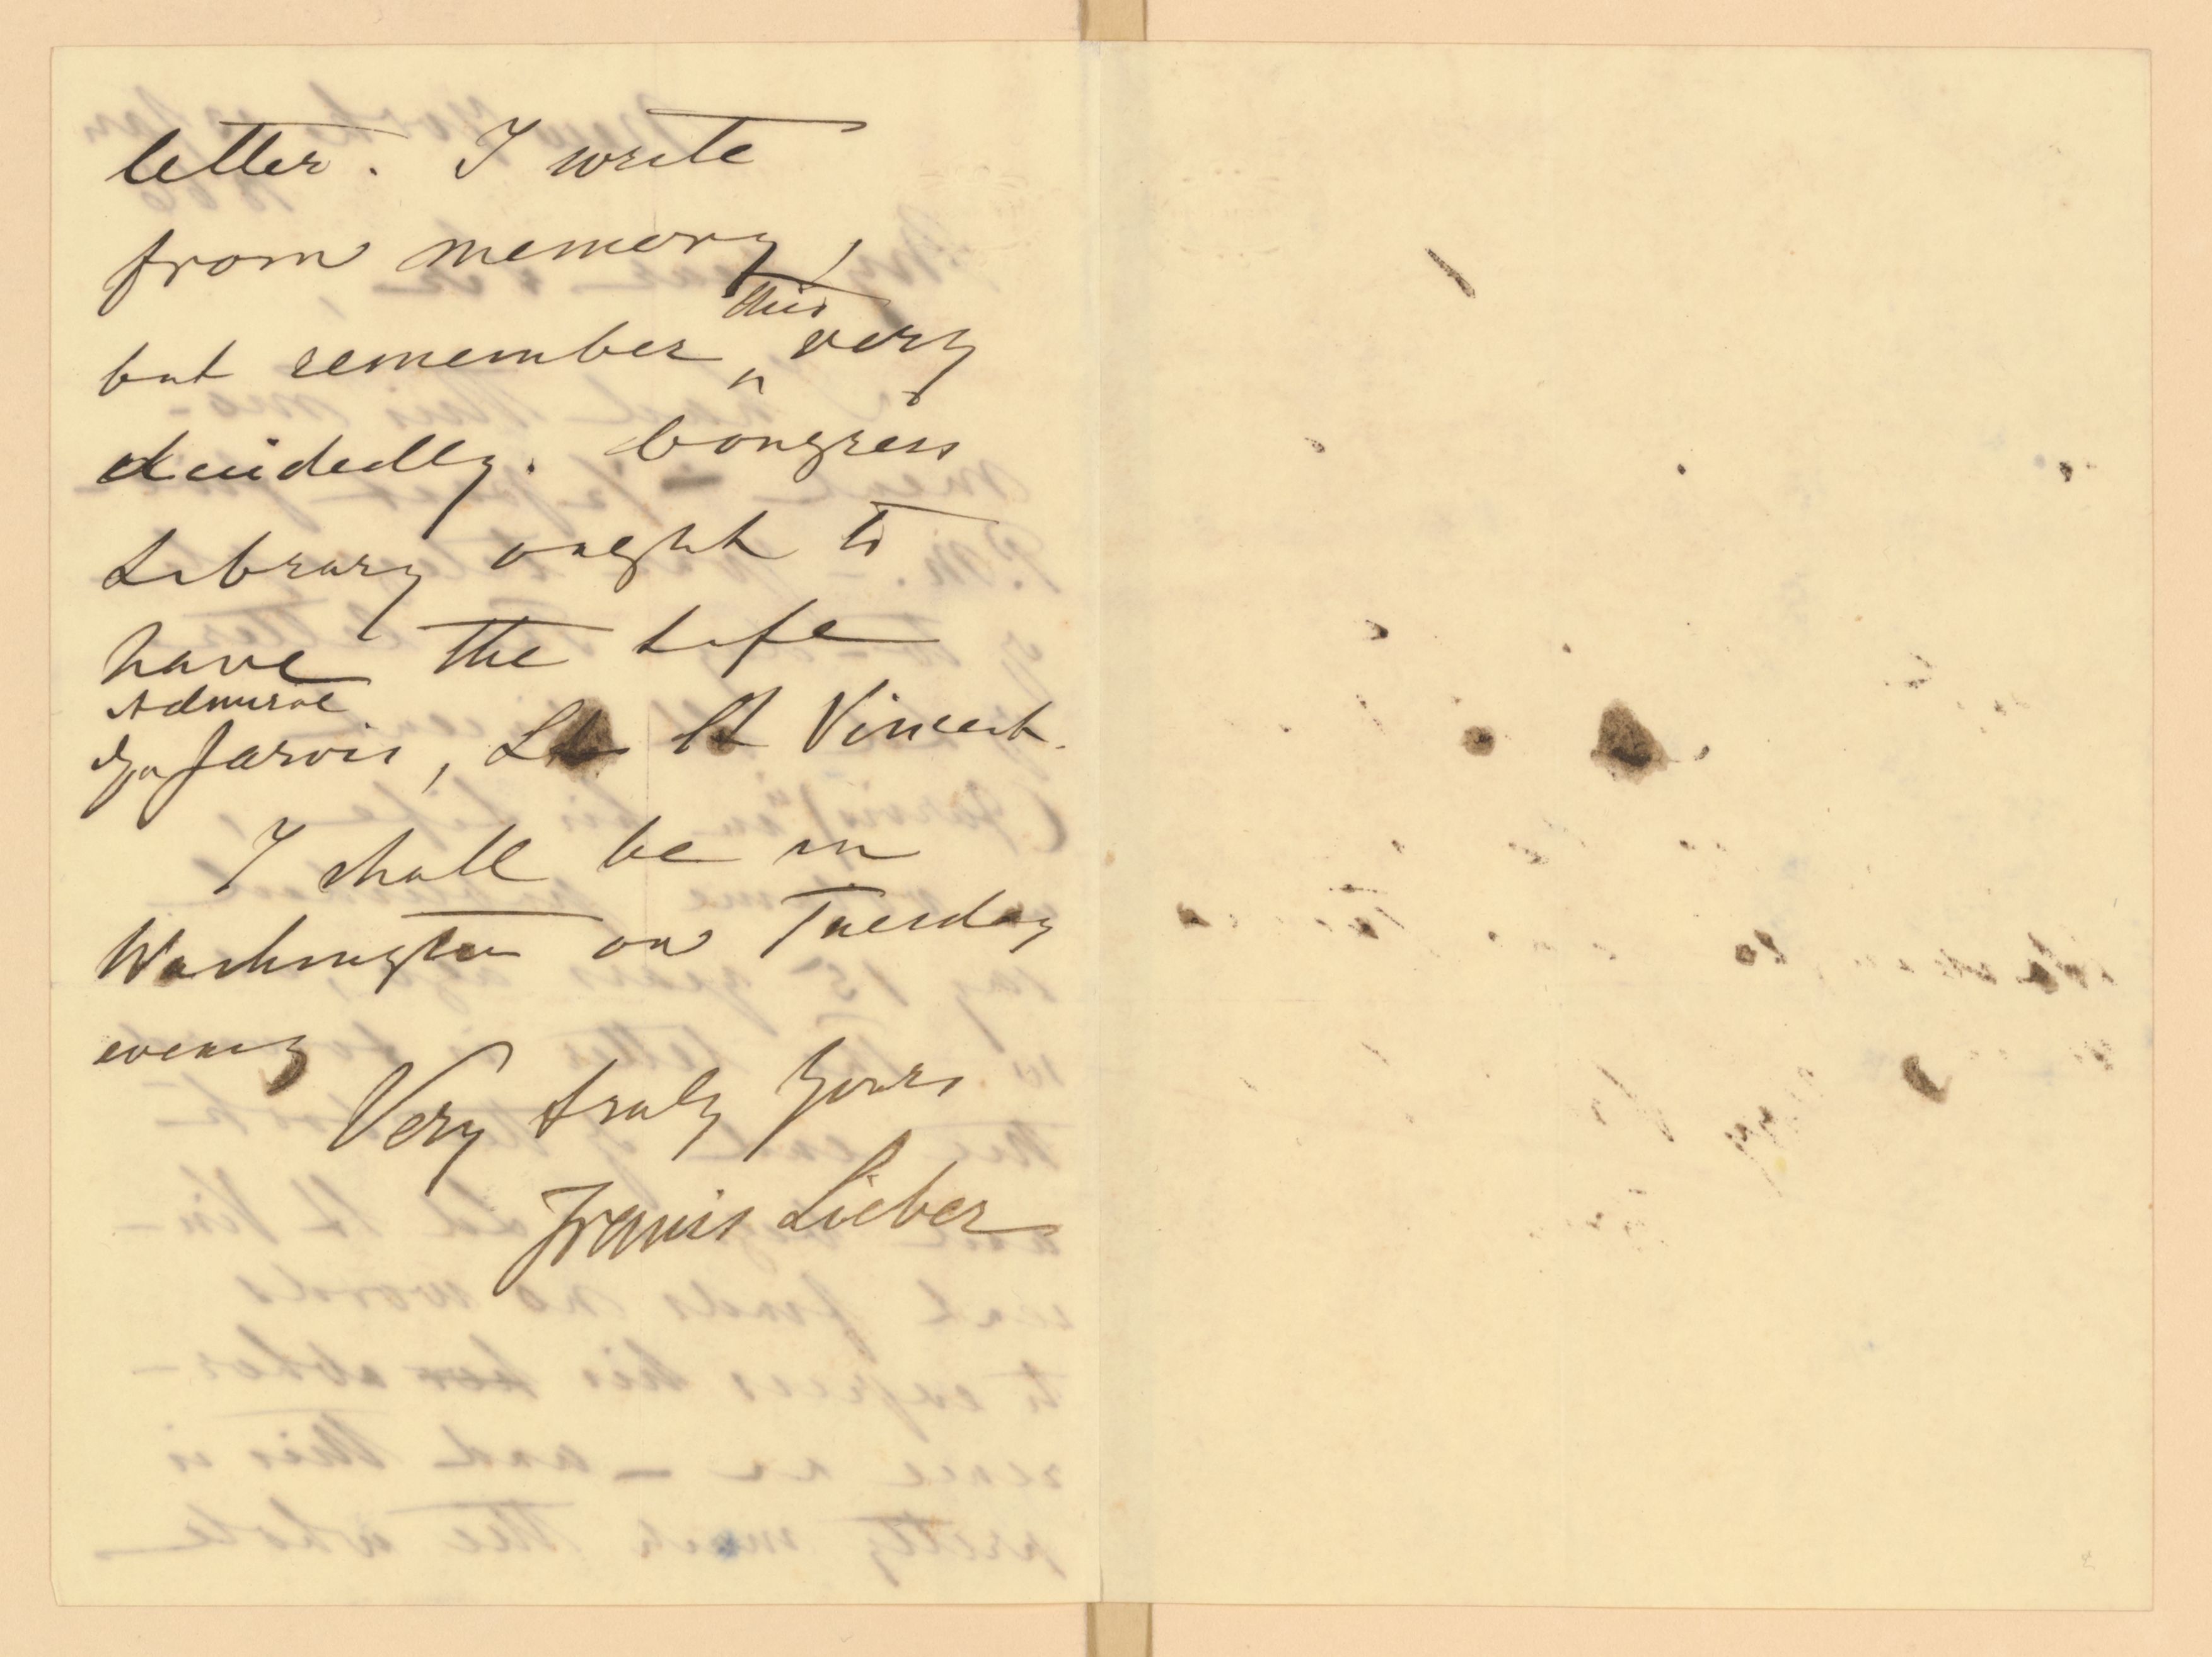 letter. I write
from memory,
but remember this very
decidedly. Congress
Library ought to
have the Life
Admiral
of Jarvis, Ld St Vincent.
I shall be in
Washington on Tuesday
evening
Very truly yours
Francis Lieber